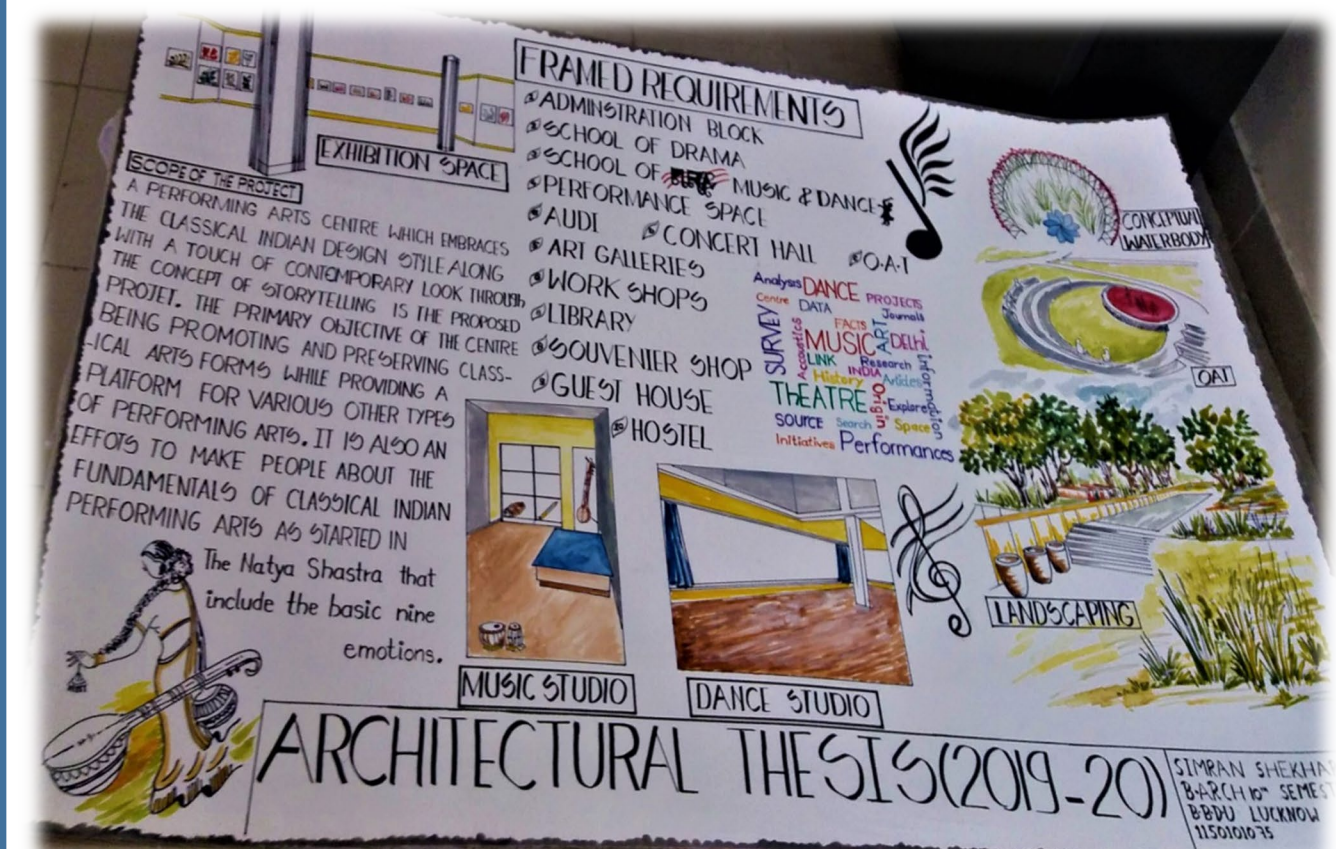 EXHIBITION SPACE
SCOPE OF THE PROJECT
A PERFORMING ARTS CENTRE WHICH EMBRACES
THE CLASSICAL INDIAN DESIGN STYLE ALONG
WITH A TOUCH OF CONTEMPORARY LOOK THROUGH
THE CONCEPT OF STORYTELLING IS THE PROPOSED
PROJET. THE PRIMARY OBJECTIVE OF THE CENTRE
BEING PROMOTING AND PRESERVING CLASS-
-ICAL ARTS FORMS WHILE PROVIDING A
PLATFORM FOR VARIOUS OTHER TYPES
OF PERFORMING ARTS. IT IS ALSO AN
EFFOTS TO MAKE PEOPLE ABOUT THE
FUNDAMENTALS OF CLASSICAL INDIAN
PERFORMING ARTS AS STARTED IN
The Natya Shastra that
include the basic nine
emotions.
FRAMED REQUIREMENTS
ADMINSTRATION BLOCK
SCHOOL OF DRAMA
SCHOOL OF MUSIC & DANCE
PERFORMANCE SPACE
AUDI CONCERT HALL O.A.T
ART GALLERIES
WORK SHOPS
LIBRARY
SOUVENIER SHOP
GUEST HOUSE
HOSTEL
Analysis DANCE PROJECTS
Centre DATA Journals
SURVEY
Accoustics
FACTS
MUSIC
ART
DELHI
LINK Research
INDIA
History Articles
Information
THEATRE
Origin
Explore
SOURCE Search Space
Initiatives Performances
CONCEPTUAL
WATERBODY
OAT
LANDSCAPING
MUSIC STUDIO
DANCE STUDIO
ARCHITECTURAL THESIS(2019-20)
SIMRAN SHEKHA
B.ARCH 10TH SEMES
BBDU LUCKNOW
1150101075